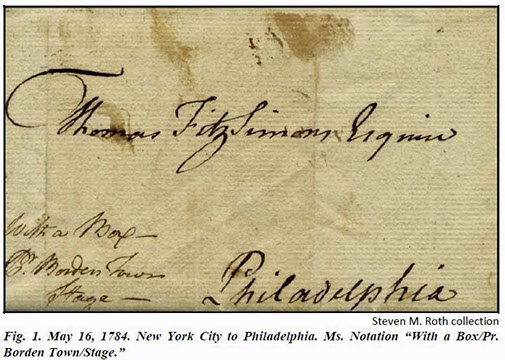 Thomas FitzSimons Esquire
With a Box—
Pr. Borden Town
Stage—
Philadelphia
Steven M. Roth collection
Fig. 1. May 16, 1784. New York City to Philadelphia. Ms. Notation “With a Box/Pr.
Borden Town/Stage.”